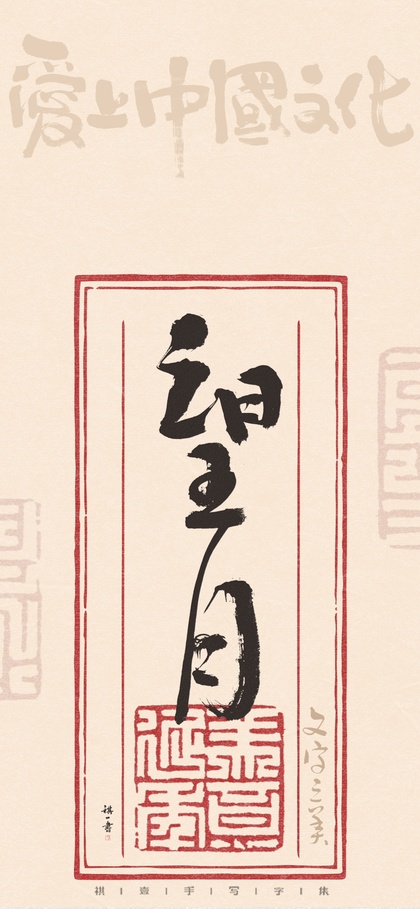 愛上中國文化
望月
文字之美
祺一書
祺喜手写字集